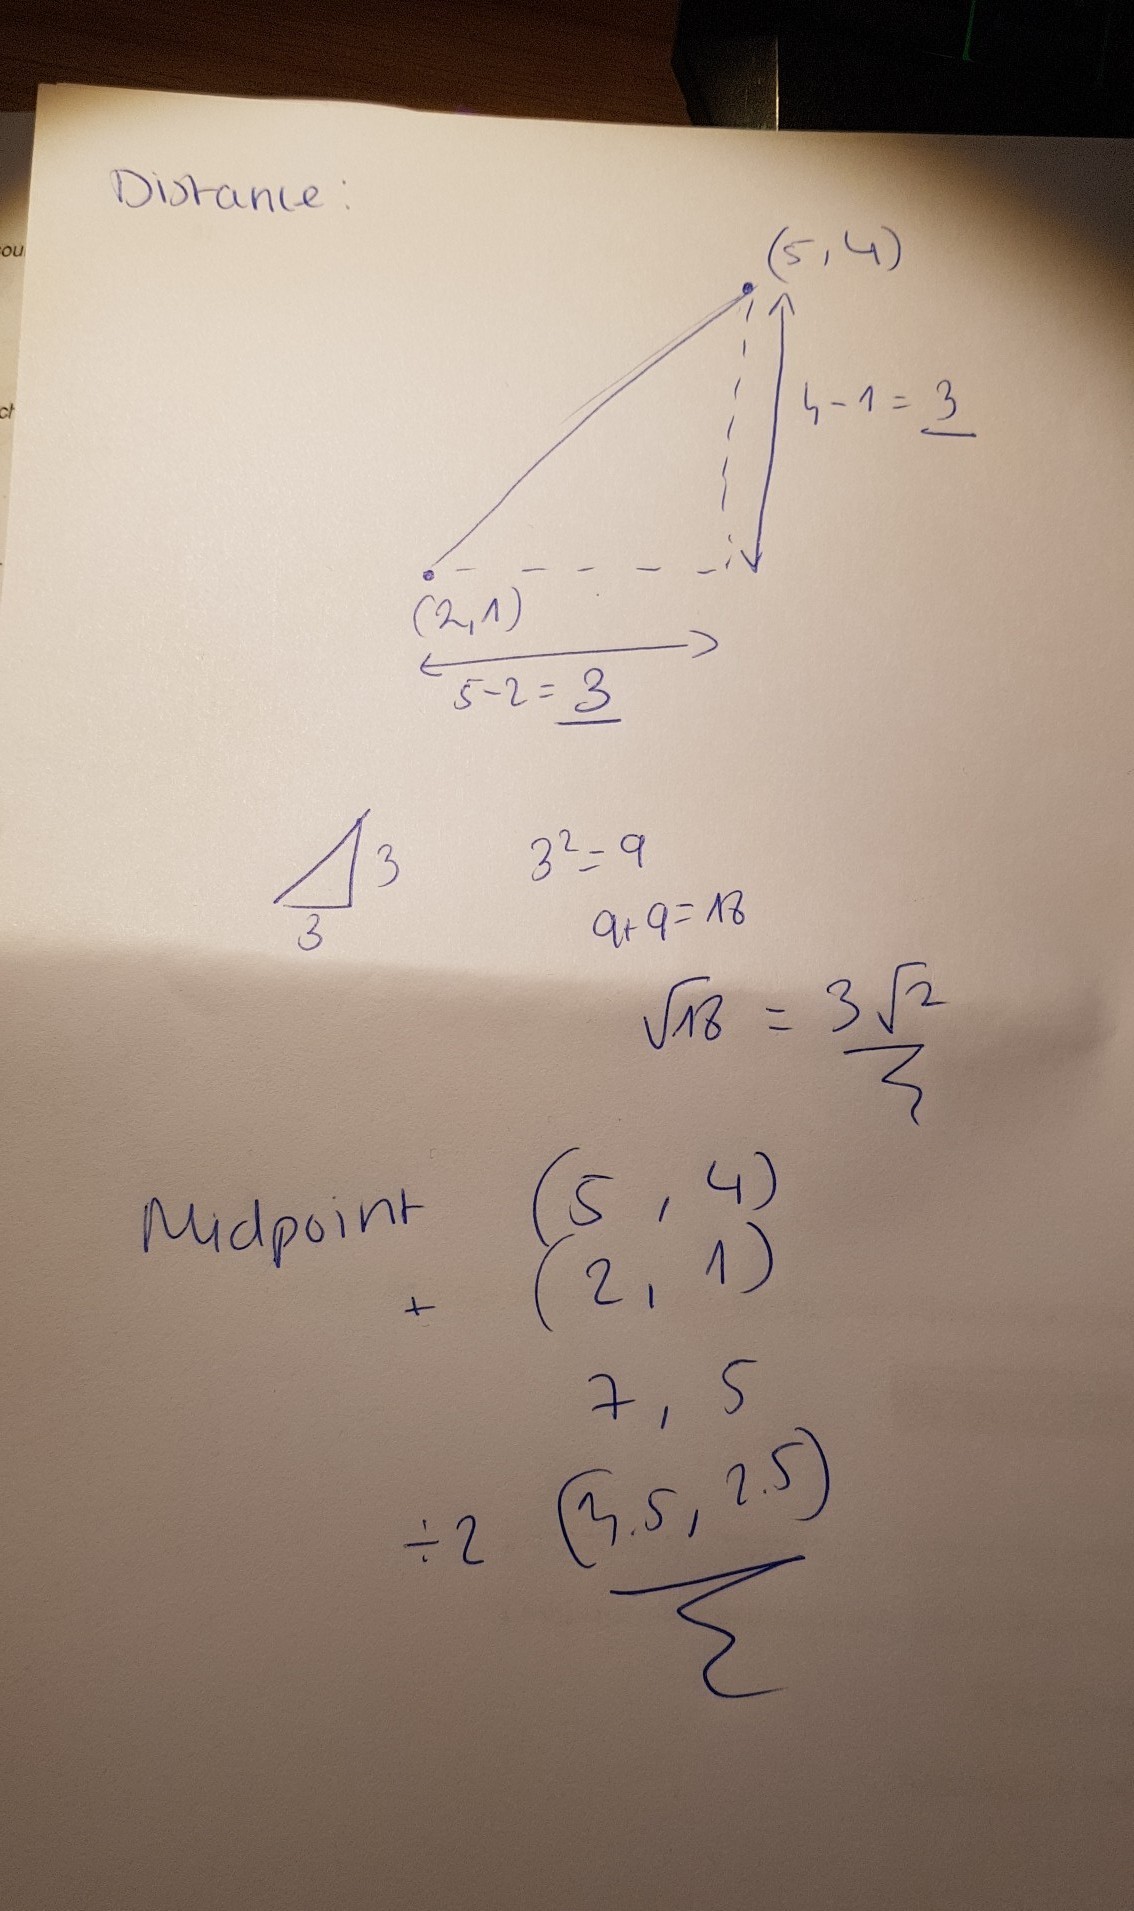 Distance:
(5, 4)
4 - 1 = 3
(2, 1)
5 - 2 = 3
3
3
3² = 9
9 + 9 = 18
√18 = 3√2
Midpoint (5, 4)
+ (2, 1)
7, 5
÷2 (3.5, 2.5)